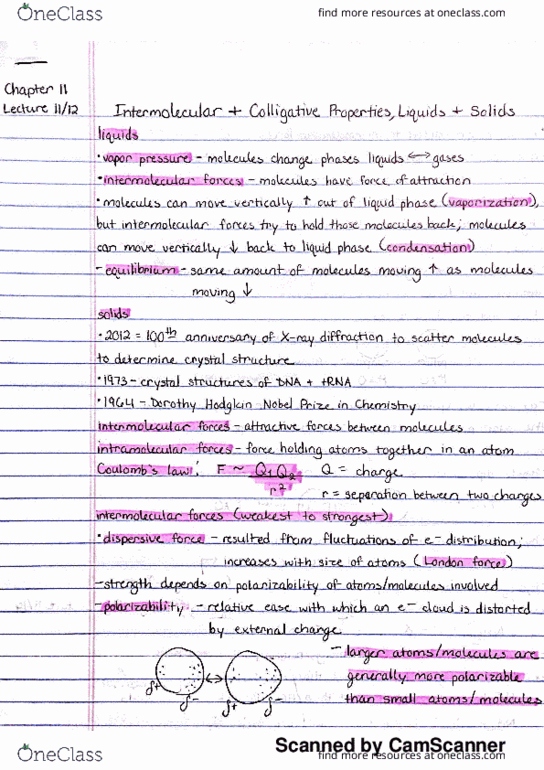 OneClass
find more resources at oneclass.com
Chapter 11
Lecture 11/12
Intermolecular + Colligative Properties, Liquids + Solids
liquids
• vapor pressure - molecules change phases liquids ↔ gases
• intermolecular forces - molecules have force of attraction
• molecules can move vertically ↑ out of liquid phase (vaporization),
but intermolecular forces try to hold those molecules back; molecules
can move vertically ↓ back to liquid phase (condensation)
- equilibrium - same amount of molecules moving ↑ as molecules
moving ↓
solids
• 2012 = 100th anniversary of X-ray diffraction to scatter molecules
to determine crystal structure
• 1973 - crystal structures of DNA + tRNA
• 1964 - Dorothy Hodgkin Nobel Prize in Chemistry
intermolecular forces - attractive forces between molecules
intramolecular forces - force holding atoms together in an atom
Coulomb's law: F ~ Q1Q2/r² Q = charge
r = seperation between two charges
intermolecular forces (weakest to strongest)
• dispersive force - resulted from fluctuations of e- distribution;
increases with size of atoms (London force)
- strength depends on polarizability of atoms/molecules involved
- polarizability - relative ease with which an e- cloud is distorted
by external change
- larger atoms/molecules are
generally more polarizable
than small atoms/molecules
δ+ δ- δ+ δ-
Scanned by CamScanner
OneClass
find more resources at oneclass.com